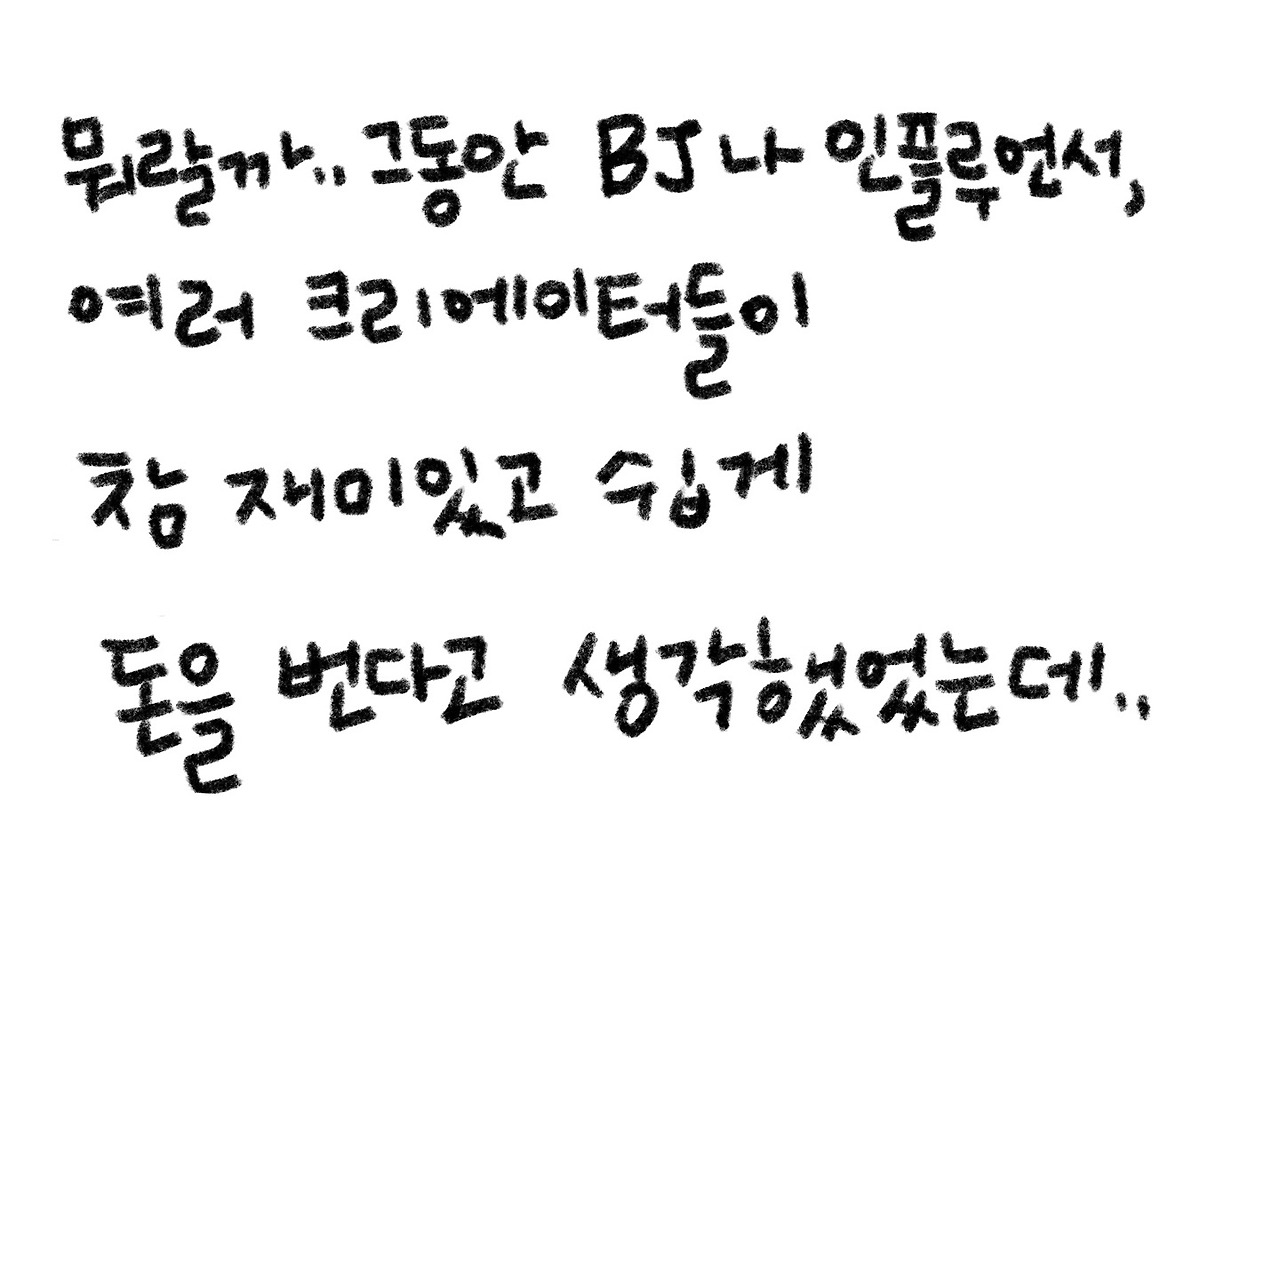 뭐랄까.. 그동안 BJ나 인플루언서,
여러 크리에이터들이
참 재미있고 쉽게
돈을 번다고 생각했었는데..